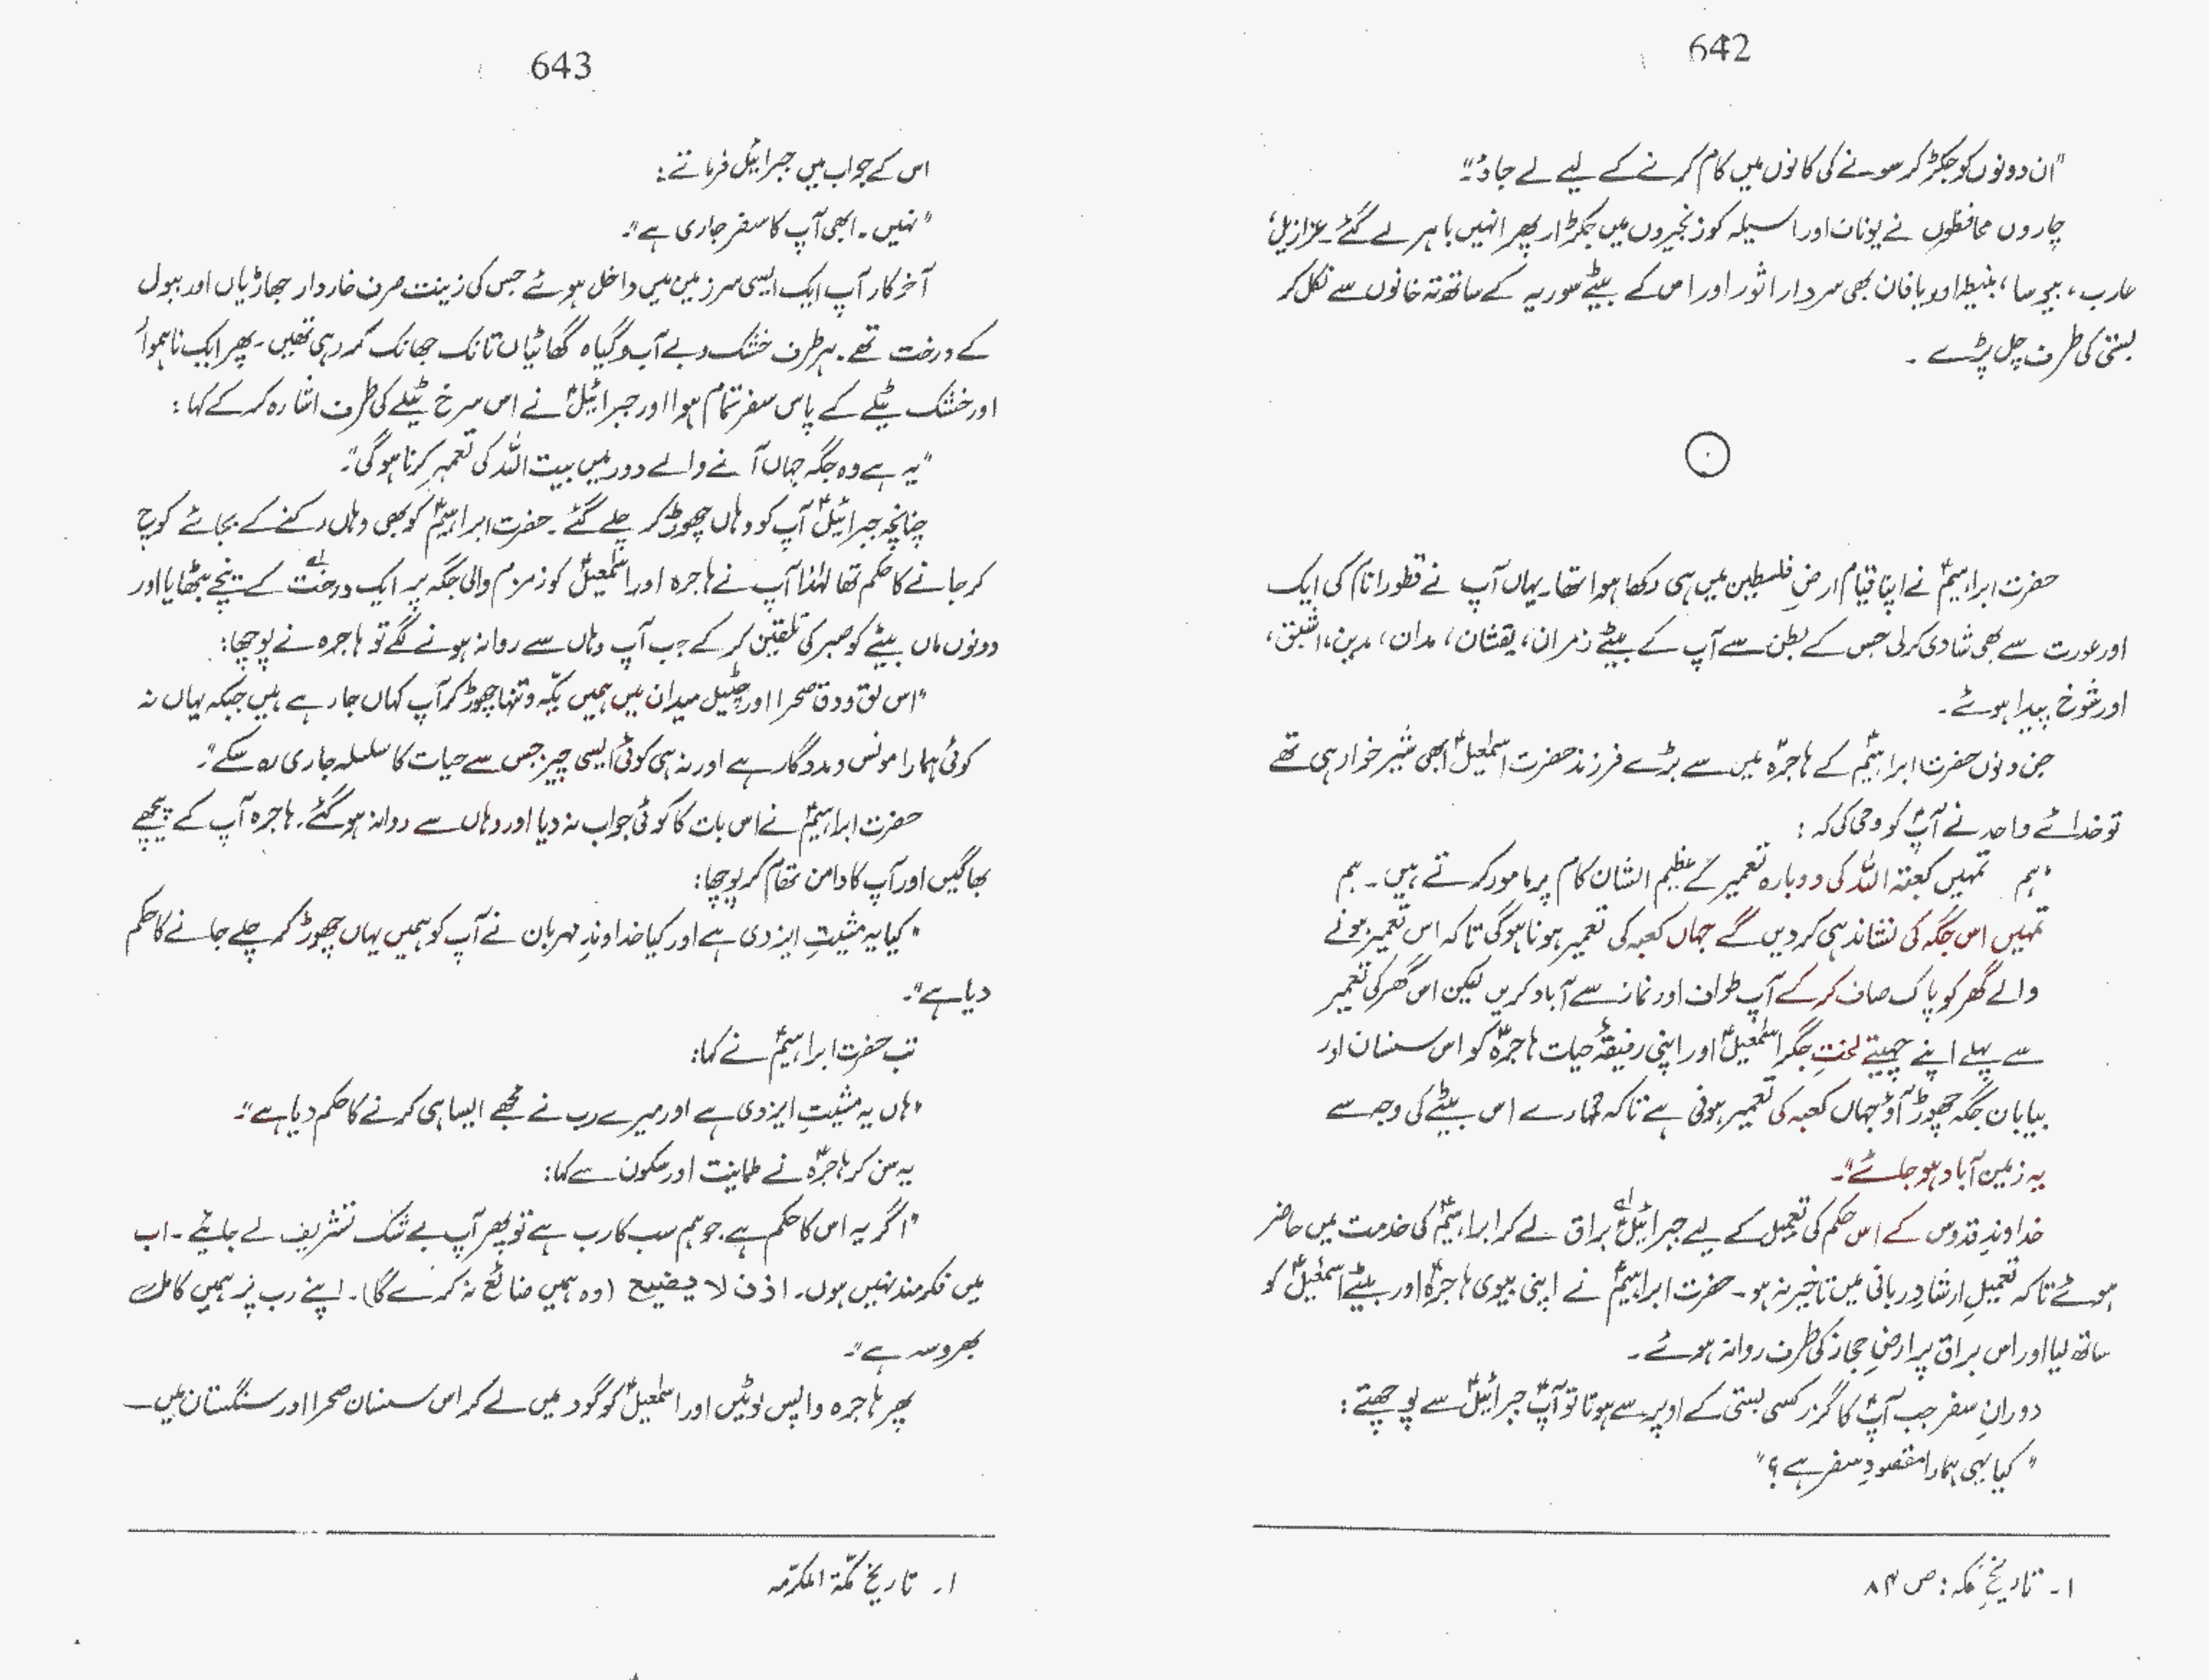 642
"ان دونوں کو جکڑ کر سونے کی کانوں میں کام کرنے کے لیے لے جاؤ"۔
چاروں محافظوں نے یوناف اور اسیلہ کو زنجیروں میں جکڑا اور پھر انہیں باہر لے گئے۔ عزازیل،
عارب، بیوسا، بنیطہ اور یافان بھی سردار اثور اور اس کے بیٹے سوریہ کے ساتھ تہ خانوں سے نکل کر
بستی کی طرف چل پڑے۔
حضرت ابراہیمؑ نے اپنا قیام ارضِ فلسطین میں ہی رکھا ہوا تھا۔ یہاں آپ نے قطورا نام کی ایک
اور عورت سے بھی شادی کر لی جس کے بطن سے آپ کے بیٹے زمران، یقشان، مدان، مدین، اشبق،
اور شوخ پیدا ہوئے۔
جن دنوں حضرت ابراہیمؑ کے ہاجرہؑ میں سے بڑے فرزند حضرت اسمٰعیلؑ ابھی شیر خوار ہی تھے
تو خدائے واحد نے آپؑ کو وحی کی کہ:
"ہم تمہیں کعبۃ اللہ کی دوبارہ تعمیر کے عظیم الشان کام پر مامور کرتے ہیں۔ ہم
تمہیں اس جگہ کی نشاندہی کر دیں گے جہاں کعبہ کی تعمیر ہونا ہو گی تاکہ اس تعمیر ہونے
والے گھر کو پاک صاف کر کے آپ طواف اور نماز سے آباد کریں لیکن اس گھر کی تعمیر
سے پہلے اپنے چہیتے لختِ جگر اسمٰعیلؑ اور اپنی رفیقۂ حیات ہاجرہؑ کو اس سنسان اور
بیابان جگہ چھوڑ آؤ جہاں کعبہ کی تعمیر ہونی ہے تاکہ تمہارے اس بیٹے کی وجہ سے
یہ زمین آباد ہو جائے"۔
خداوندِ قدوس کے اس حکم کی تعمیل کے لیے جبرائیلؑ براق لے کر ابراہیمؑ کی خدمت میں حاضر
ہوئے تاکہ تعمیلِ ارشادِ ربانی میں تاخیر نہ ہو۔ حضرت ابراہیمؑ نے اپنی بیوی ہاجرہؑ اور بیٹے اسمٰعیلؑ کو
ساتھ لیا اور اس براق پر ارضِ حجاز کی طرف روانہ ہوئے۔
دورانِ سفر جب آپؑ کا گزر کسی بستی کے اوپر سے ہوتا تو آپؑ جبرائیلؑ سے پوچھتے:
"کیا یہی ہمارا مقصودِ سفر ہے؟"
۱۔ تاریخِ مکہ: ص ۸۴
643
اس کے جواب میں جبرائیل فرماتے:
"نہیں۔ ابھی آپ کا سفر جاری ہے"۔
آخر کار آپ ایک ایسی سرزمین میں داخل ہوئے جس کی زینت صرف خاردار جھاڑیاں اور ببول
کے درخت تھے۔ ہر طرف خشک و بے آب و گیاہ گھاٹیاں تانک جھانک کر رہی تھیں۔ پھر ایک ناہموار
اور خشک ٹیلے کے پاس سفر تمام ہوا اور جبرائیلؑ نے اس سرخ ٹیلے کی طرف اشارہ کر کے کہا:
"یہ ہے وہ جگہ جہاں آنے والے دور میں بیت اللہ کی تعمیر کرنا ہو گی"۔
چنانچہ جبرائیلؑ آپ کو وہاں چھوڑ کر چلے گئے۔ حضرت ابراہیمؑ کو بھی وہاں رکنے کے بجائے کوچ
کر جانے کا حکم تھا لہٰذا آپ نے ہاجرہ اور اسمٰعیلؑ کو زمزم والی جگہ پر ایک درخت کے نیچے بٹھایا اور
دونوں ماں بیٹے کو صبر کی تلقین کر کے جب آپ وہاں سے روانہ ہونے لگے تو ہاجرہ نے پوچھا:
"اس لق و دق صحرا اور چٹیل میدان میں ہمیں یکہ و تنہا چھوڑ کر آپ کہاں جا رہے ہیں جبکہ یہاں نہ
کوئی ہمارا مونس و مددگار ہے اور نہ ہی کوئی ایسی چیز جس سے حیات کا سلسلہ جاری رہ سکے"۔
حضرت ابراہیمؑ نے اس بات کا کوئی جواب نہ دیا اور وہاں سے روانہ ہو گئے۔ ہاجرہ آپ کے پیچھے
بھاگیں اور آپ کا دامن تھام کر پوچھا:
"کیا یہ مشیتِ ایزدی ہے اور کیا خداوندِ مہربان نے آپ کو ہمیں یہاں چھوڑ کر چلے جانے کا حکم
دیا ہے"۔
تب حضرت ابراہیمؑ نے کہا:
"ہاں یہ مشیتِ ایزدی ہے اور میرے رب نے مجھے ایسا ہی کرنے کا حکم دیا ہے"۔
یہ سن کر ہاجرہؑ نے طمانیت اور سکون سے کہا:
"اگر یہ اس کا حکم ہے۔ جو ہم سب کا رب ہے تو پھر آپ بے شک تشریف لے جائیے۔ اب
میں فکر مند نہیں ہوں۔ اذن لا یضیع (وہ ہمیں ضائع نہ کرے گا)۔ اپنے رب پر ہمیں کامل
بھروسہ ہے"۔
پھر ہاجرہ واپس لوٹیں اور اسمٰعیلؑ کو گود میں لے کر اس سنسان صحرا اور سنگستان میں۔
۱۔ تاریخ مکۃ المکرّمہ